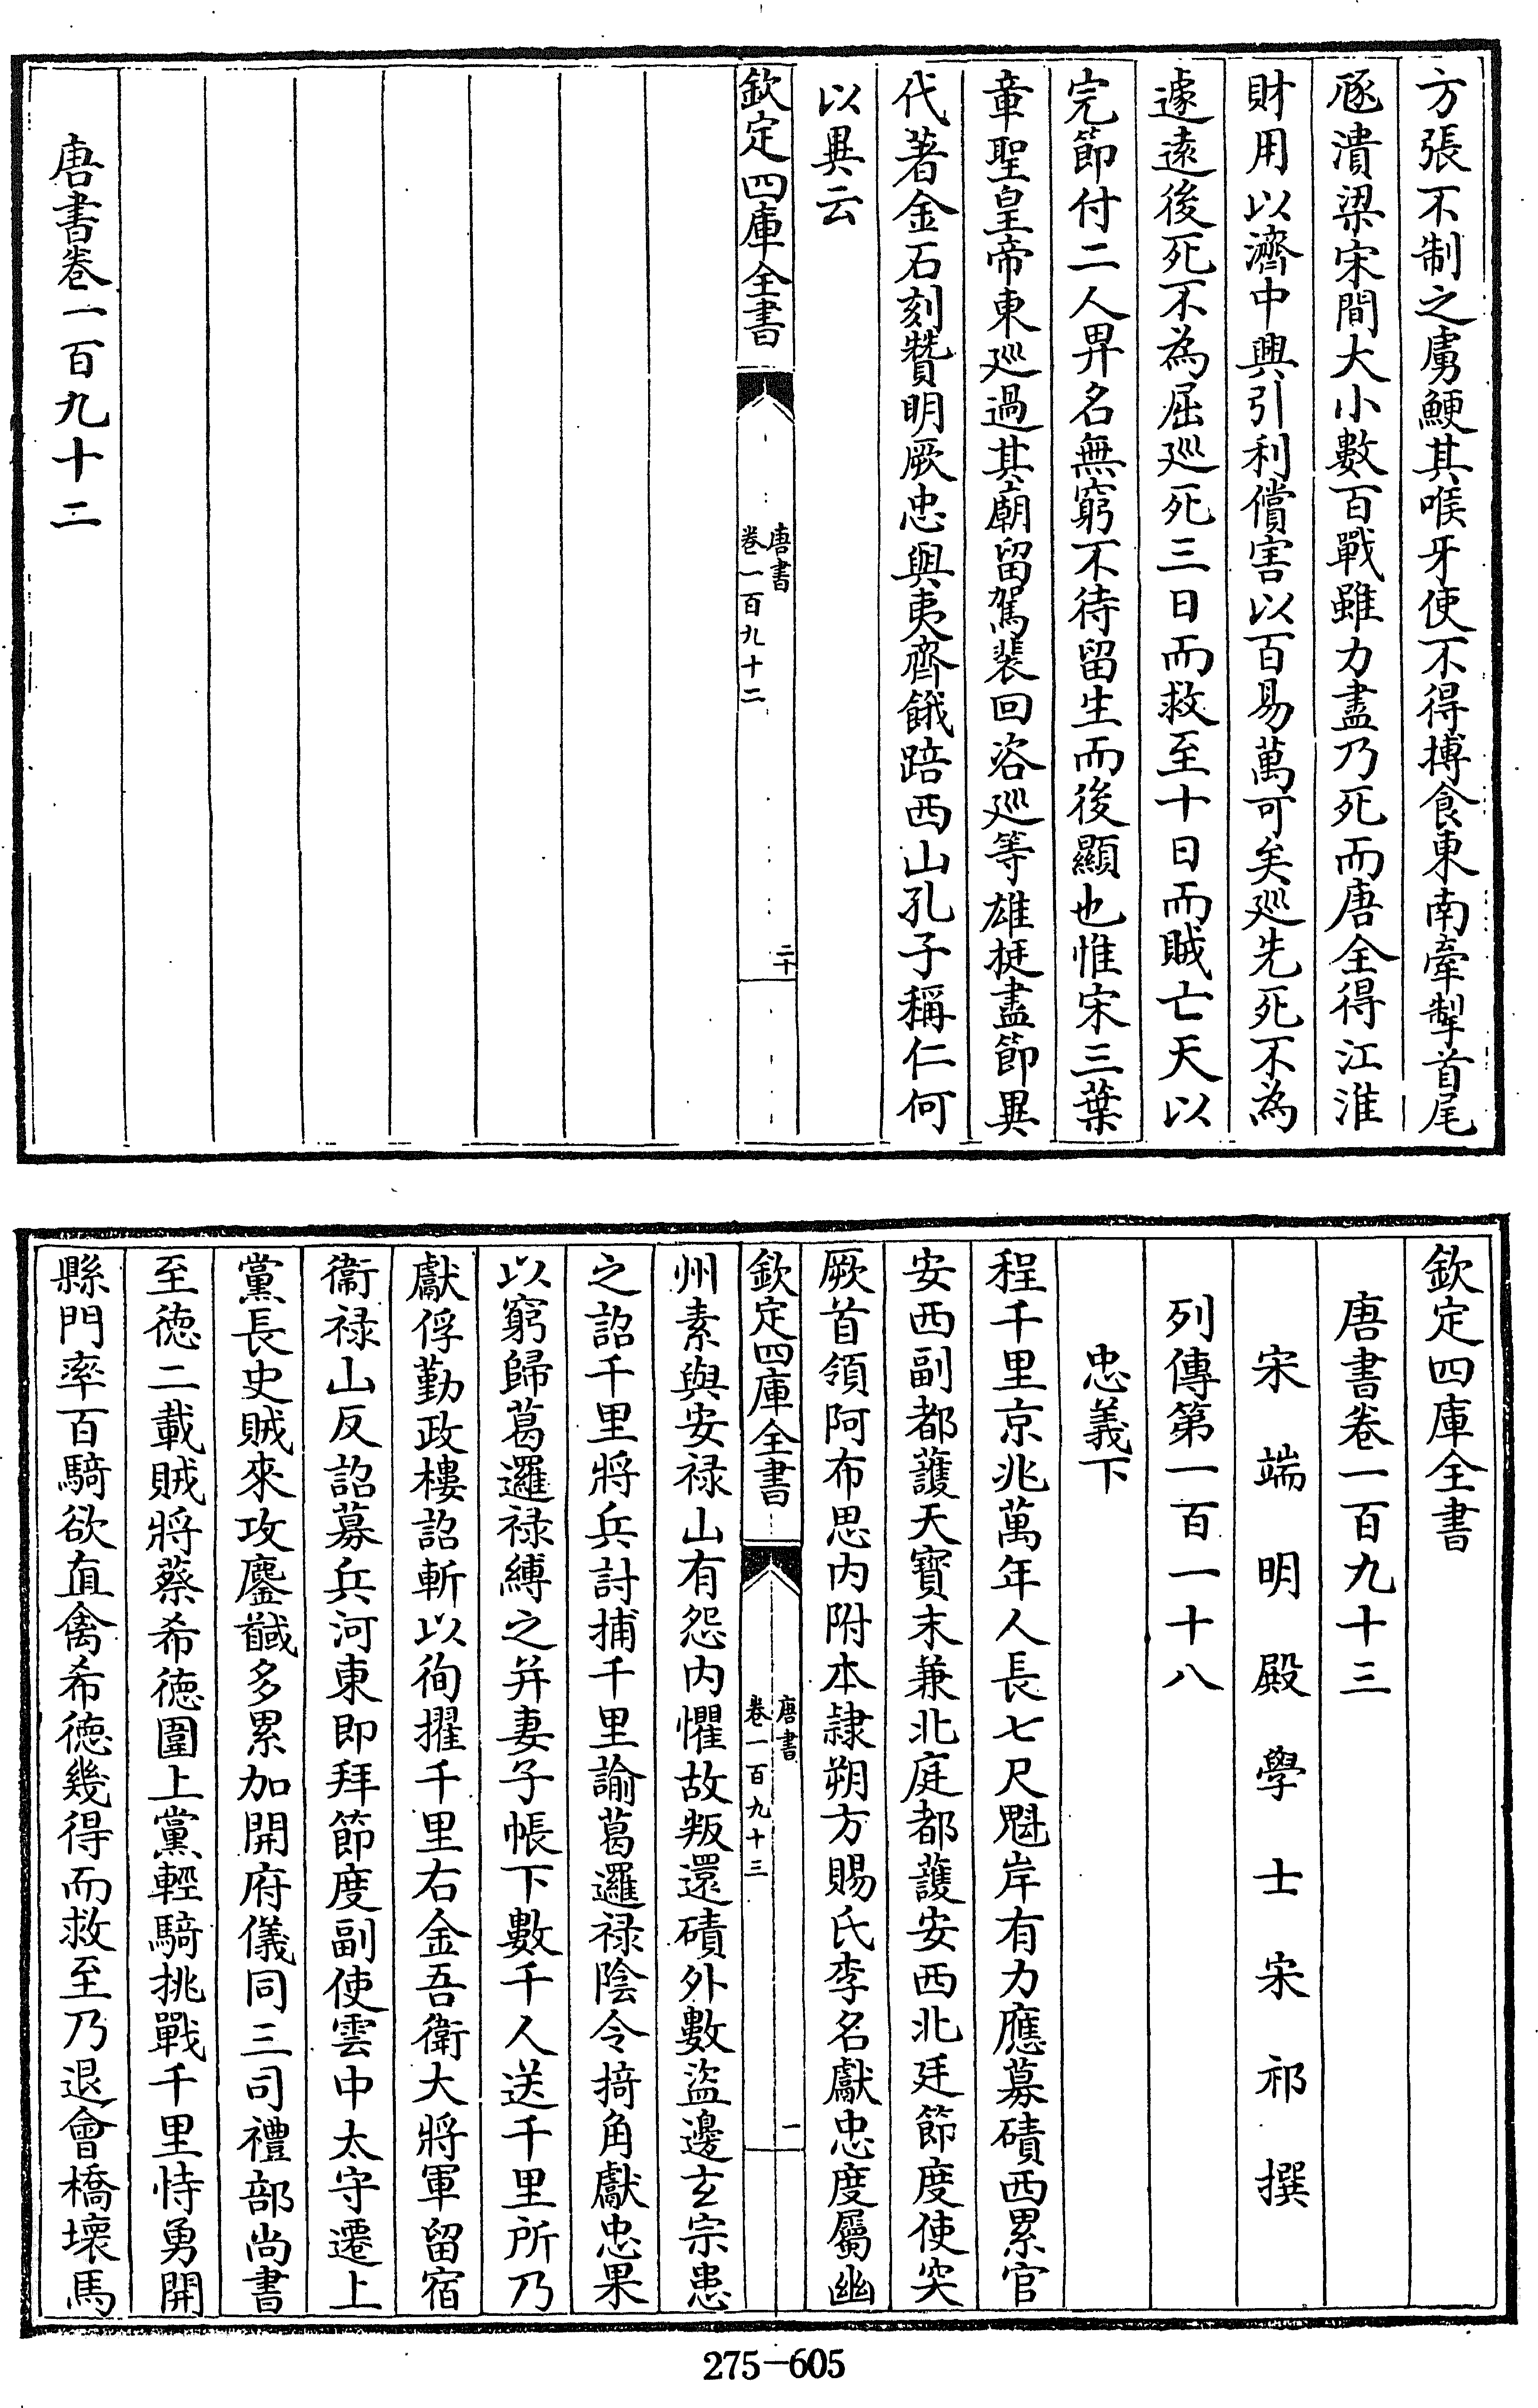 方張不制之虜鯁其喉牙使不得搏食東南牽掣首尾
豗潰梁宋間大小數百戰雖力盡乃死而唐全得江淮
財用以濟中興引利償害以百易萬可矣巡先死不為
遽遠後死不為屈巡死三日而救至十日而賊亡天以
完節付二人畀名無窮不待留生而後顯也惟宋三葉
章聖皇帝東巡過其廟留駕裴回咨巡等雄挺盡節異
代著金石刻贊明厥忠與夷齊餓踣西山孔子稱仁何
以異云
欽定四庫全書
唐書
卷一百九十二
二十
唐書卷一百九十二
欽定四庫全書
唐書卷一百九十三
宋端明殿學士宋祁撰
列傳第一百一十八
忠義下
程千里京兆萬年人長七尺魁岸有力應募磧西累官
安西副都護天寶末兼北庭都護安西北廷節度使突
厥首領阿布思內附本隷朔方賜氏李名獻忠度屬幽
欽定四庫全書
唐書
卷一百九十三
一
州素與安禄山有怨內懼故叛還磧外數盜邊玄宗患
之詔千里將兵討捕千里諭葛邏禄陰令掎角獻忠果
以窮歸葛邏禄縛之并妻子帳下數千人送千里所乃
獻俘勤政樓詔斬以徇擢千里右金吾衛大將軍留宿
衞禄山反詔募兵河東即拜節度副使雲中太守遷上
黨長史賊來攻鏖馘多累加開府儀同三司禮部尚書
至徳二載賊將蔡希徳圍上黨輕騎挑戰千里恃勇開
縣門率百騎欲直禽希徳幾得而救至乃退會橋壞馬
275-605